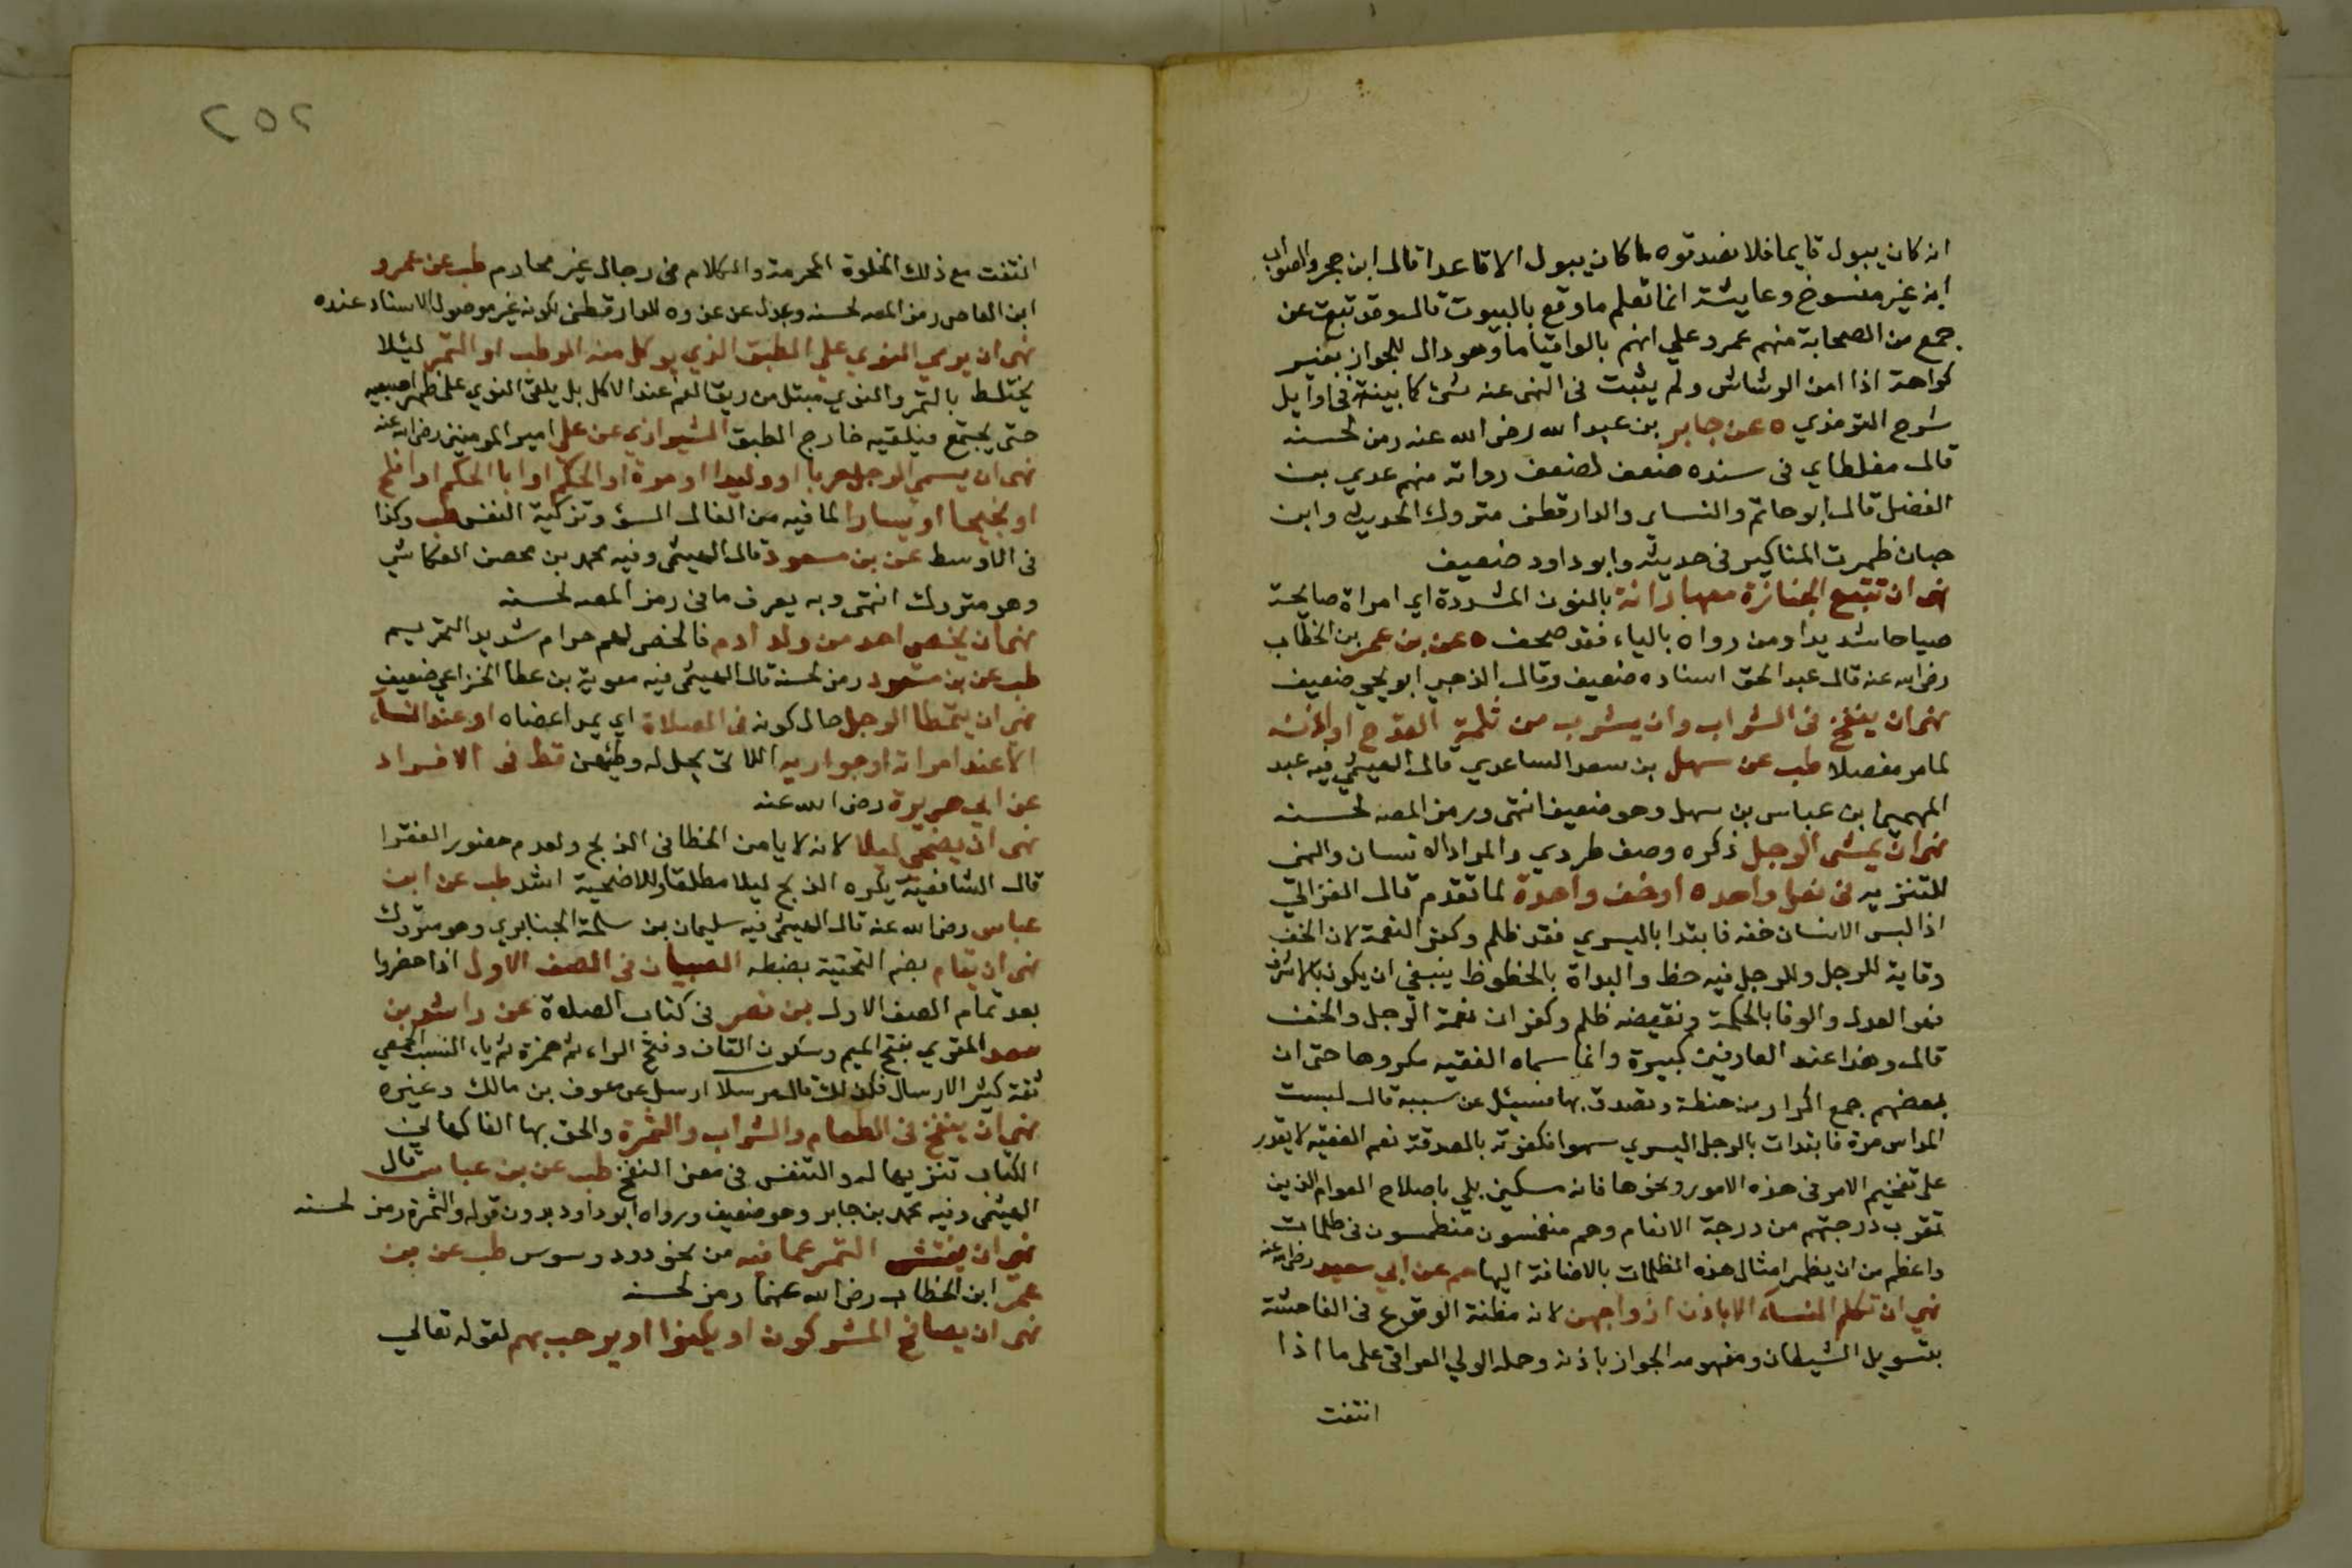 انه كان يبول قايما فلا تصدقوه ما كان يبول الا قاعدا قال ابن حجر والصواب
انه غير منسوخ وعايشة انما تعلم ما وقع بالبيوت قال وقد ثبت عن
جمع من الصحابة منهم عمر وعلي انهم بالوا قياما وهو دال للجواز بغير
كراهة اذا امن الرشاش ولم يثبت في النهى عنه شئ كما بينته في اوايل
شرح الترمذي ٥ عن جابر بن عبد الله رضى الله عنه رمز لحسنه
قال مغلطاي في سنده ضعف لضعف رواته منهم عدي بن
الفضل قال ابو حاتم والنساي والدارقطنى متروك الحديث وابن
حبان ظهرت المناكير في حديثه وابو داود ضعيف
نهى ان تتبع الجنازة معها رانة بالنون المشددة اي امراة صايحة
صياحا شديدا ومن رواه بالياء فقد صحف ٥ عن بن عمر بن الخطاب
رضى الله عنه قال عبد الحق اسناده ضعيف وقال الذهبي ابو يحيى ضعيف
نهى ان ينفخ في الشراب وان يشرب من ثلمة القدح او اذنه
لما مر مفصلا طب عن سهل بن سعد الساعدي قال الهيثمي فيه عبد
المهيمن بن عباس بن سهل وهو ضعيف انتهى ورمز المصه لحسنه
نهى ان يمشى الرجل ذكره وصف طردي والمراد الانسان والنهى
للتنزيه في نعل واحده او خف واحدة لما تقدم قال الغزالي
اذا لبس الانسان خفه فابتدا باليسري فقد ظلم وكفر النعمة لان الخف
وقاية للرجل وللرجل فيه حظ والبداة بالحظوظ ينبغي ان يكون بالاشرف
فهو العدل والوفا بالحكمة ونقيضه ظلم وكفران نعمة الرجل والخف
قال وهذا عند العارفين كبيرة وانما سماه الفقيه مكروها حتى ان
بعضهم جمع اكرار من حنطة وتصدق بها فسيئل عن سببه قال لبست
المداس مرة فابتدات بالرجل اليسري سهوا فكفرته بالصدقة نعم الفقيه لا يقدر
على تفخيم الامر في هذه الامور ونحوها فانه مسكين بلي باصلاح العوام الذين
تقرب درجتهم من درجة الانعام وهم منغمسون منطمسون في ظلمات
واعظم من ان يظهر امثال هذه الظلمات بالاضافة اليها حم عن ابي سعيد رضى الله عنه
نهي ان تكلم النساء الا باذن ازواجهن لانه مظنة الوقوع في الفاحشة
بتسويل الشيطان ومفهومه الجواز باذنه وحمله الولي العراقي على ما اذا
انتفت
٢٥٢
انتفت مع ذلك الخلوة المحرمة والكلام في رجال غير محارم طب عن عمرو
ابن العاص رمز المصه لحسنه وعدل عن عزوه للدارقطنى لكونه غير موصول الاسناد عنده
نهى ان يرمى النوي على الطبق الذي يوكل منه الرطب او التمر ليئلا
يختلط بالتمر والنوي مبتل من ريق الفم عند الاكل بل يلقى النوي على ظهر اصبعيه
حتى يجتمع فيلقيه خارج الطبق الشيرازي عن علي امير المومنين رضى الله عنه
نهى ان يسمي الرجل حربا او وليدا او مرة او الحكم او ابا الحكم او افلح
او نجيحا او يسارا لما فيه من الفال السؤ وتزكية النفس طب وكذا
في الاوسط عن بن مسعود قال الهيثمى وفيه محمد بن محصن العكاشي
وهو متروك انتهى وبه يعرف ما في رمز المصه لحسنه
نهى ان يخصى احد من ولد ادم فالخصى لهم حرام شديد التحريم
طب عن بن مسعود رمز لحسنه قال الهيثمى فيه معوية بن عطا الخزاعي ضعيف
نهى ان يتمطا الرجل حال كونه في الصلاة اي يمد اعضاه او عند النساء
الا عند امراته او جواريه اللاتى يحل له وطئهن قط في الافراد
عن ابي هريرة رضى الله عنه
نهى ان يضحى ليلا لانه لا يامن الخطا في الذبح ولعدم حضور الفقرا
قال الشافعية يكره الذبح ليلا مطلقا وللاضحية اشد طب عن ابن
عباس رضى الله عنه قال الهيثمى فيه سليمان بن سلمة الجنايزي وهو متروك
نهى ان يقام بضم التحتية بضبطه الصبيان في الصف الاول اذا حضروا
بعد تمام الصف الاول بن نصر في كتاب الصلاة عن راشد بن
سعد المقري بفتح الميم وسكون القاف وفتح الراء ثم همزة ثم ياء النسب الحمصي
ثقة كثير الارسال فلذلك قال مرسلا ارسل عن عوف بن مالك وغيره
نهى ان ينفخ في الطعام والشراب والثمرة والحق بها الفاكهاني
الكتاب تنزيها له والتنفس في معنى النفخ طب عن بن عباس قال
الهيثمى وفيه محمد بن جابر وهو ضعيف ورواه ابو داود بدون قوله والثمرة رمز لحسنه
نهى ان يفتش التمر عما فيه من نحو دود وسوس طب عن بن
عمر ابن الخطاب رضى الله عنهما رمز لحسنه
نهى ان يصافح المشركون او يكنوا او يرحب بهم لقوله تعالي